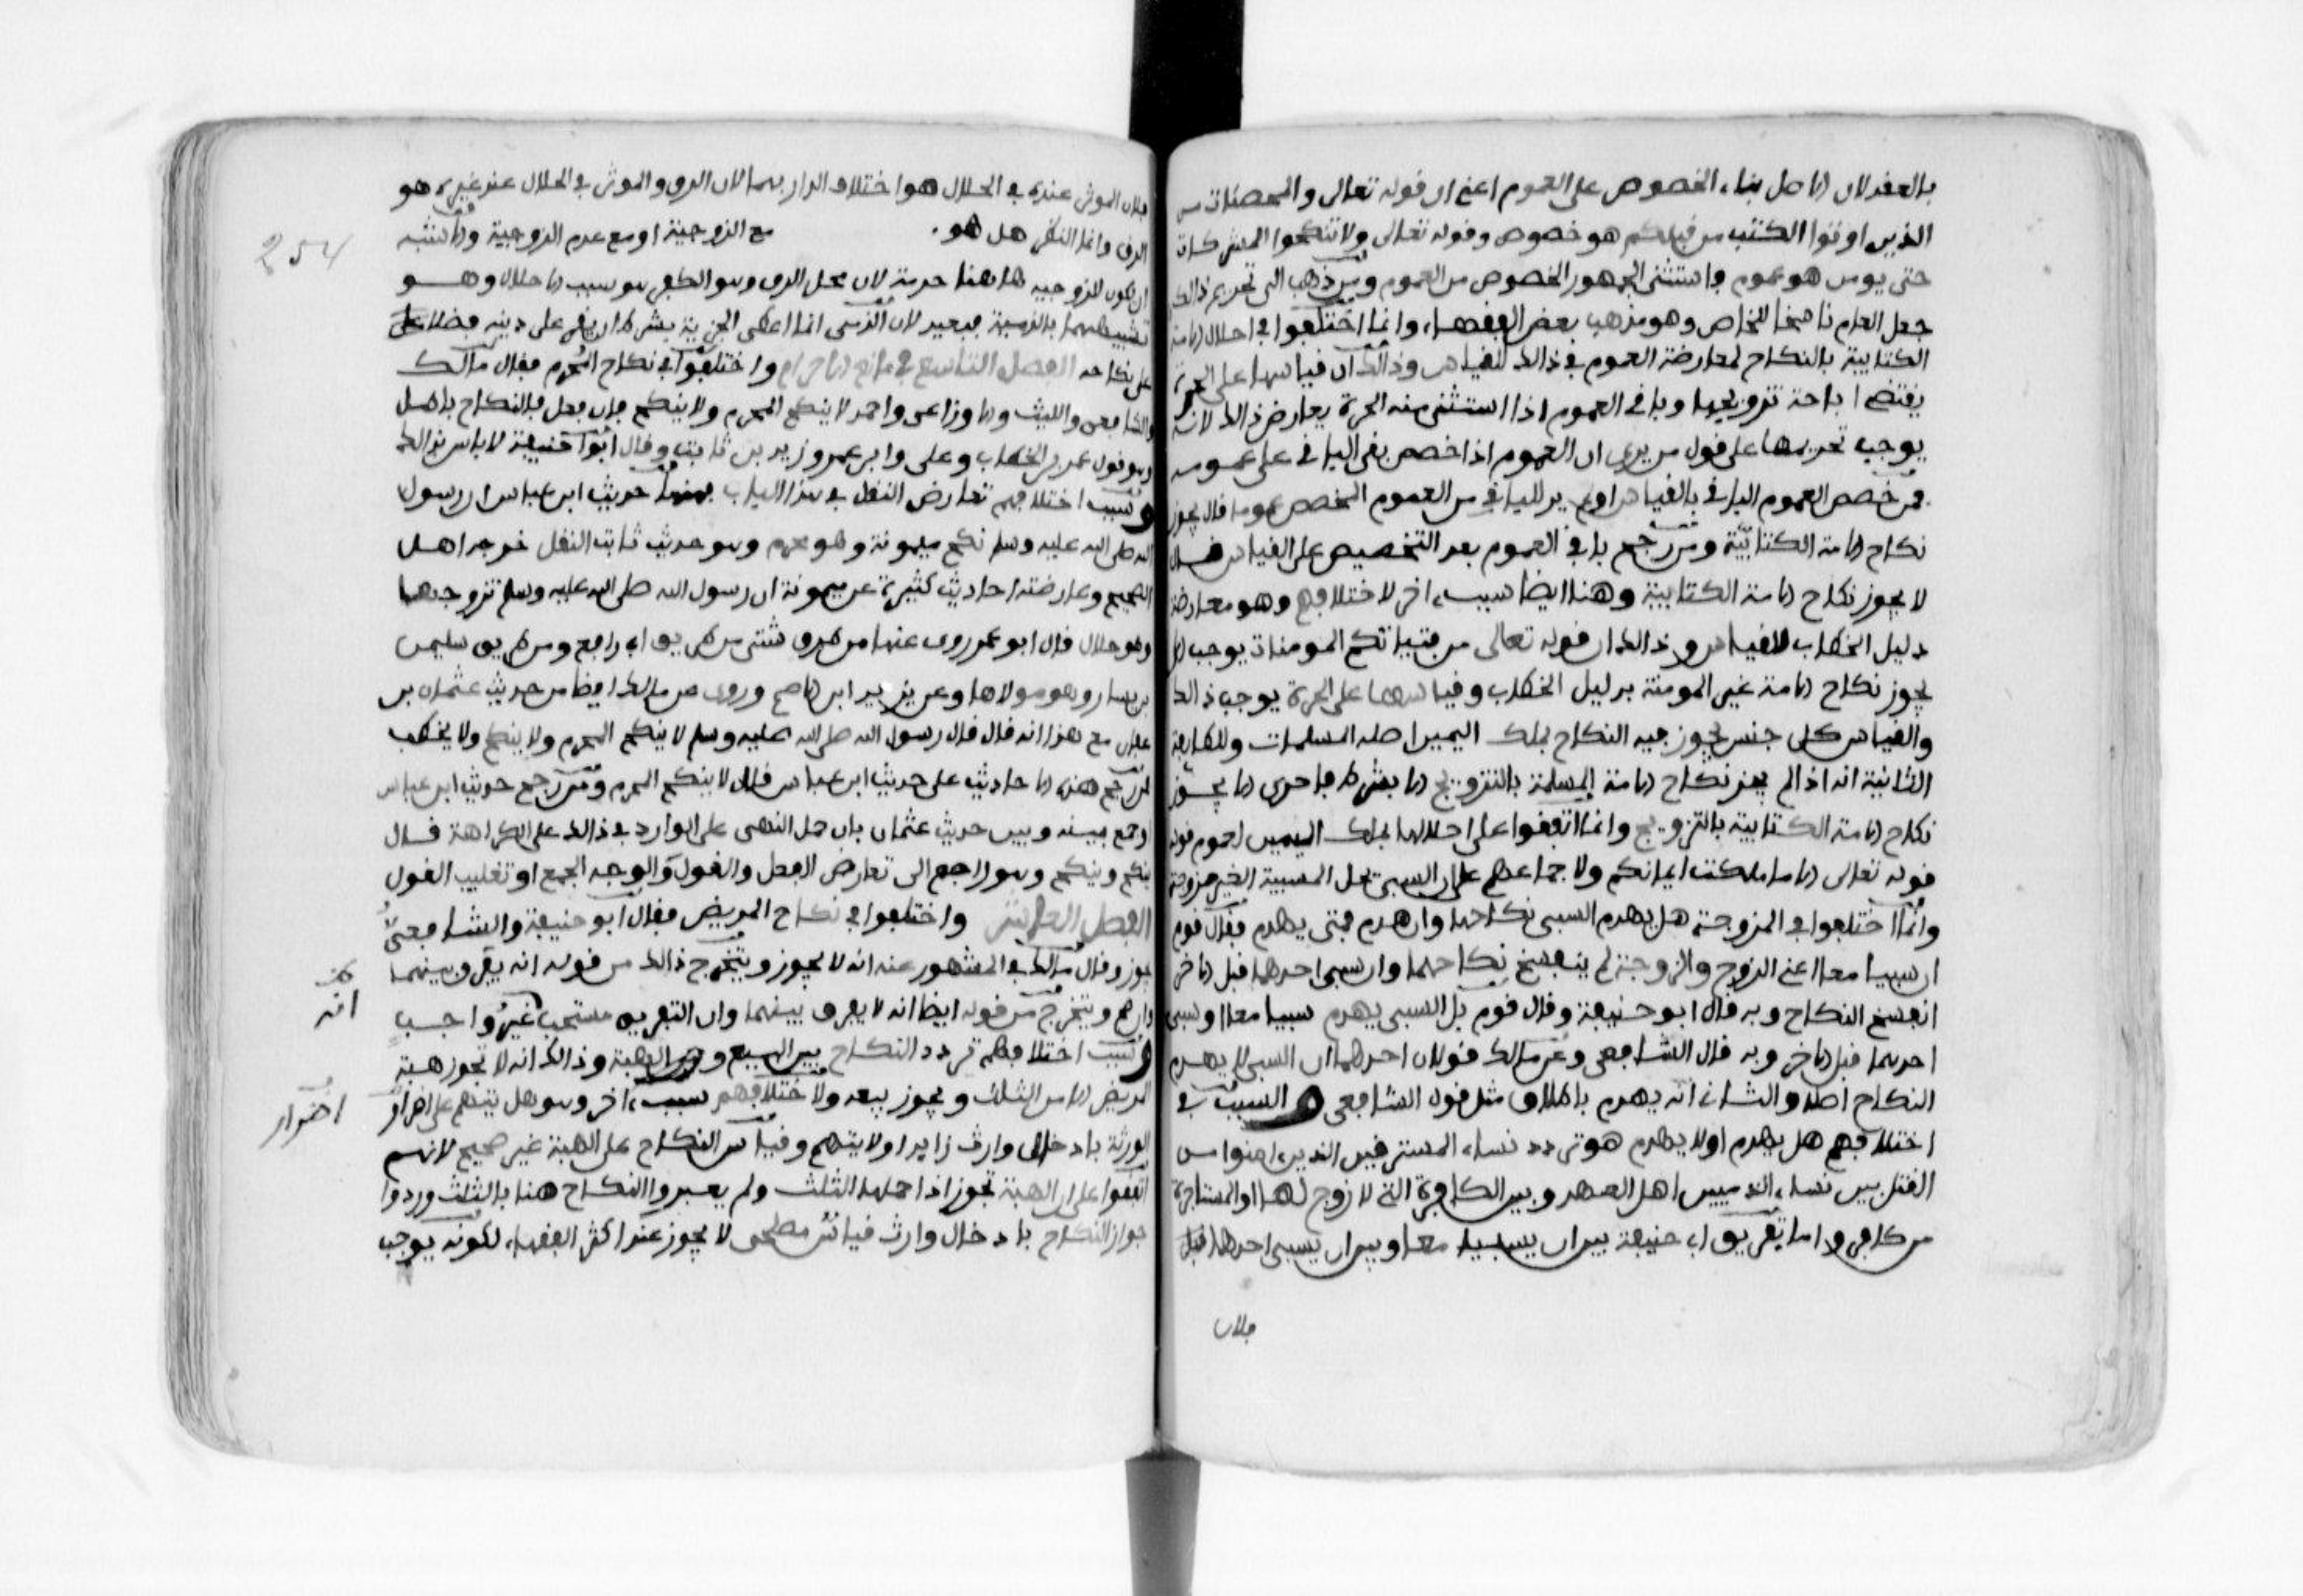 بالعقد لان الاصل بناء الخصوص على العموم اعني ان قوله تعالى والمحصنات من
الذين اوتوا الكتب من قبلكم هو خصوص وقوله تعالى ولا تنكحوا المشركات
حتى يومن هو عموم واستثنى الجمهور الخصوص من العموم ومن ذهب الى تحريم ذالك
جعل العام ناسخا للخاص وهو مذهب بعض الفقهاء وانما اختلفوا في احلال الامة
الكتابية بالنكاح لمعارضة العموم في ذالك للقياس وذالك ان قياسها على الحرة
يقتضي اباحة تزويجها وباقي العموم اذا استثنى منه الحرة يعارض ذالك لانه
يوجب تحريمها على قول من يرى ان العموم اذا خصص بقي الباقي على عمومه
فمن خصص العموم الباقي بالقياس او لم ير للباقي من العموم المخصص عموما قال يجوز
نكاح الامة الكتابية ومن رجح باقي العموم بعد التخصيص على القياس قال
لا يجوز نكاح الامة الكتابية وهنا ايضا سبب اخر لاختلافهم وهو معارضة
دليل الخطاب للقياس وذالك ان قوله تعالى من فتياتكم المومنات يوجب الا
يجوز نكاح الامة غير المومنة بدليل الخطاب وقياسها على الحرة يوجب ذالك
والقياس كل جنس يجوز فيه النكاح بملك اليمين اصله المسلمات وللطايفة
الثانية انه اذا لم يجز نكاح الامة المسلمة بالتزويج الا بشرط فاحرى الا يجوز
نكاح الامة الكتابية بالتزويج وانما اتفقوا على احلالها بملك اليمين لعموم قوله
قوله تعالى الا ما ملكت ايمانكم ولاجماعهم على ان السبي يحل المسبية الغير مزوجة
وانما اختلفوا في المزوجة هل يهدم السبي نكاحها وان هدم فمتى يهدم فقال قوم
ان سبيا معا اعني الزوج والزوجة لم ينفسخ نكاحهما وان سبي احدهما قبل الاخر
انفسخ النكاح وبه قال ابو حنيفة وقال قوم بل السبي يهدم سبيا معا او سبي
احدهما قبل الاخر وبه قال الشافعي وعن مالك قولان احدهما ان السبي لا يهدم
النكاح اصلا والثاني انه يهدم باطلاق مثل قول الشافعي والسبب في
اختلافهم هل يهدم او لا يهدم هو تردد نساء المسترقين الذين امنوا من
القتل بين نساء الذميين اهل العهد وبين الكافرة التي لا زوج لها او المستاجرة
من كافر واما تفريق ابي حنيفة بين ان يسبيا معا وبين ان يسبى احدهما قبل
فلان
254
فلان الموثر عنده في الحلال هو اختلاف الدار بهما لان الرق والموثر في الحلال عند غيره هو
الرق وانما النظر هل هو مع الزوجية او مع عدم الزوجية والاشبه
ان يكون للزوجية هاهنا حرمة لان محل الرق وهو الكفر هو سبب الاحلال وهو
تشبيههما بالذمية فبعيد لان الذمي انما اعطى الجزية بشرط ان يقر على دينه فضلا على
على نكاحه الفصل التاسع في مانع الاحرام واختلفوا في نكاح المحرم فقال مالك
والشافعي والليث والاوزاعي واحمد لا ينكح المحرم ولا ينكح فان فعل فالنكاح باطل
وهو قول عمر بن الخطاب وعلي وابن عمر وزيد بن ثابت وقال ابو حنيفة لا باس بذالك
وسبب اختلافهم تعارض النقل في هذا الباب فمنها حديث ابن عباس ان رسول
الله صلى الله عليه وسلم نكح ميمونة وهو محرم وهو حديث ثابت النقل خرجه اهل
الصحيح وعارضته احاديث كثيرة عن ميمونة ان رسول الله صلى الله عليه وسلم تزوجها
وهو حلال قال ابو عمر روى عنها من طرق شتى من طريق ابي رافع ومن طريق سليمن
بن يسار وهو مولاها وعن يزيد ابن الاصم وروى عن مالك ايضا من حديث عثمان بن
عفان مع هذا انه قال قال رسول الله صلى الله عليه وسلم لا ينكح المحرم ولا ينكح ولا يخطب
فمن رجح هذه الاحاديث على حديث ابن عباس قال لا ينكح المحرم ومن رجح حديث ابن عباس
او جمع بينه وبين حديث عثمان بان حمل النهي على الوارد في ذالك على الكراهة قال
ينكح وينكح وهو راجع الى تعارض الفعل والقول والوجه الجمع او تغليب القول
الفصل العاشر واختلفوا في نكاح المريض فقال ابو حنيفة والشافعي
يجوز وقال مالك في المشهور عنه انه لا يجوز ويتخرج ذالك من قوله انه يفرق بينهما
وان صح ويتخرج من قوله ايضا انه لا يفرق بينهما وان التفريق مستحب غير واجب
وسبب اختلافهم تردد النكاح بين البيع وبين الهبة وذالك انه لا تجوز هبة
المريض الا من الثلث ويجوز بيعه ولاختلافهم سبب اخر وهو هل يتهم على اضرار
الورثة بادخال وارث زايد او لا يتهم وقياس النكاح على الهبة غير صحيح لانهم
اتفقوا على ان الهبة تجوز اذا حملها الثلث ولم يعتبروا النكاح هنا بالثلث وردوا
جواز النكاح بادخال وارث قياس مصلحي لا يجوز عند اكثر الفقهاء لكونه يوجب
انه
اضرار